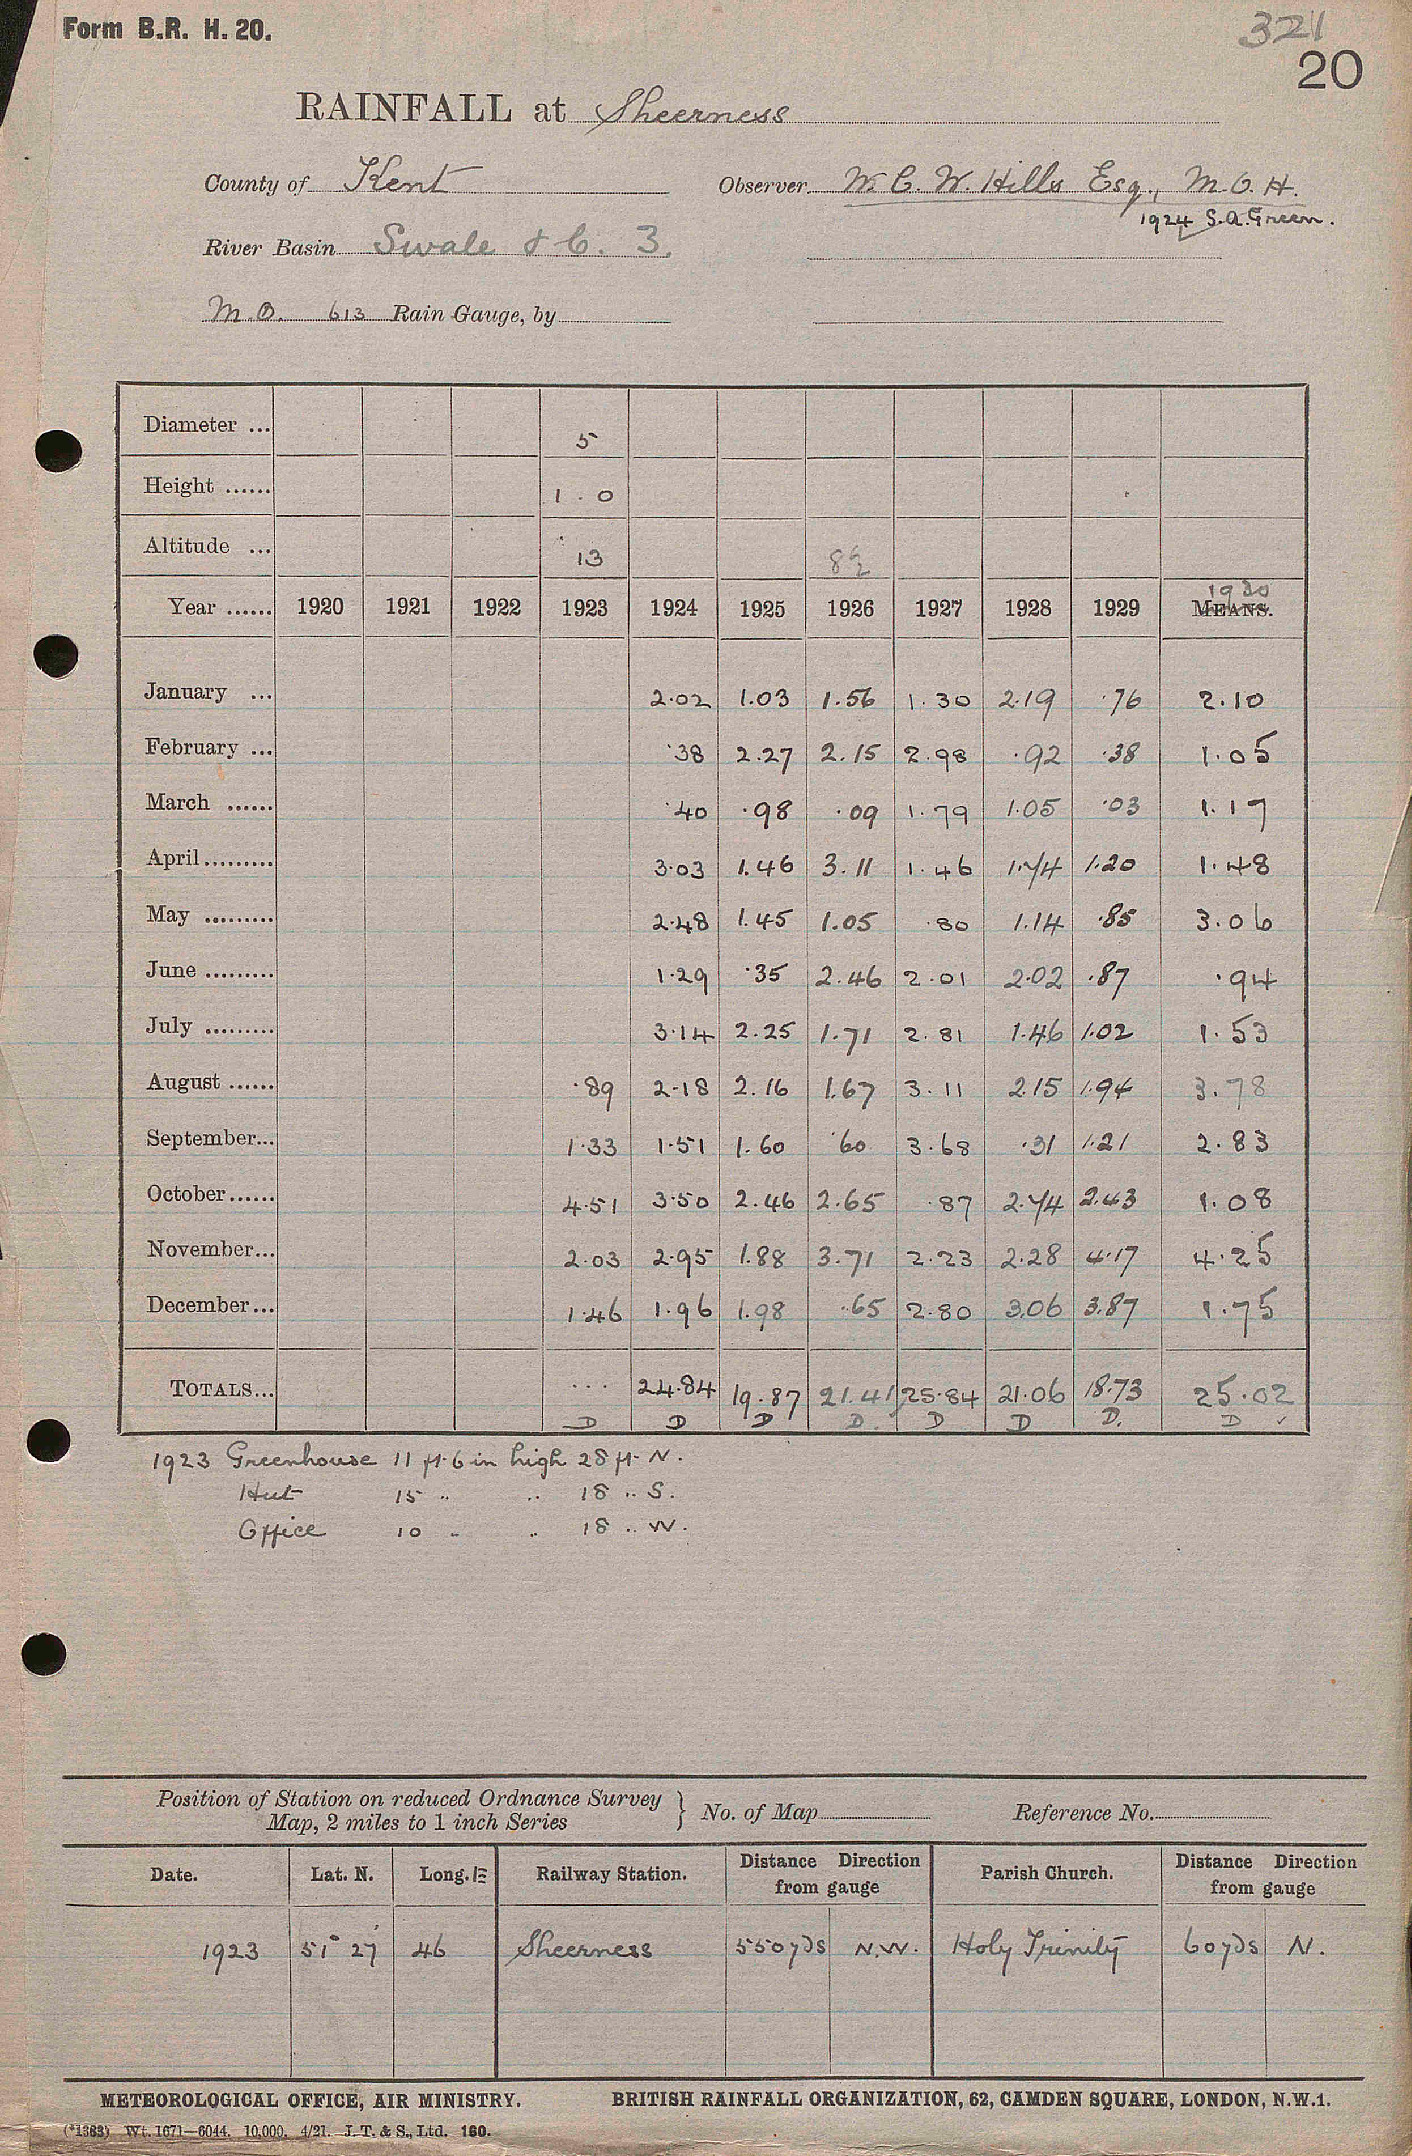 Form B.R. H. 20.
321
20
RAINFALL at Sheerness
County of Kent Observer W. C. W. Hills Esq., M.O.H.
1924 S.A. Green.
River Basin Swale &c. 3.
M.O. 613 Rain Gauge, by
Diameter ... 5
Height ...... 1.0
Altitude ... 13 8½
1930
Year ...... 1920 1921 1922 1923 1924 1925 1926 1927 1928 1929 MEANS.
January ... 2.02 1.03 1.56 1.30 2.19 .76 2.10
February ... .38 2.27 2.15 2.98 .92 .38 1.05
March ...... .40 .98 .09 1.79 1.05 .03 1.17
April ......... 3.03 1.46 3.11 1.46 1.74 1.20 1.48
May ......... 2.48 1.45 1.05 .80 1.14 .85 3.06
June ......... 1.29 .35 2.46 2.01 2.02 .87 .94
July ......... 3.14 2.25 1.71 2.81 1.46 1.02 1.53
August ...... .89 2.18 2.16 1.67 3.11 2.15 1.94 3.78
September... 1.33 1.51 1.60 .60 3.68 .31 1.21 2.83
October...... 4.51 3.50 2.46 2.65 .87 2.74 2.43 1.08
November... 2.03 2.95 1.88 3.71 2.23 2.28 4.17 4.25
December... 1.46 1.96 1.98 .65 2.80 3.06 3.87 1.75
TOTALS... ... 24.84 19.87 21.41 25.84 21.06 18.73 25.02
D D D D. D D D. D ✓
1923 Greenhouse 11 ft. 6 in high 28 ft. N.
Hut 15 " " 18 " S.
Office 10 " " 18 " W.
Position of Station on reduced Ordnance Survey
Map, 2 miles to 1 inch Series } No. of Map Reference No.
Date. Lat. N. Long. E Railway Station. Distance Direction from gauge Parish Church. Distance Direction from gauge
1923 51° 27' 46 Sheerness 550 yds N.W. Holy Trinity 60 yds N.
METEOROLOGICAL OFFICE, AIR MINISTRY. BRITISH RAINFALL ORGANIZATION, 62, CAMDEN SQUARE, LONDON, N.W.1.
(*1383) Wt. 1671—6044. 10,000. 4/21. J. T. & S., Ltd. 160.